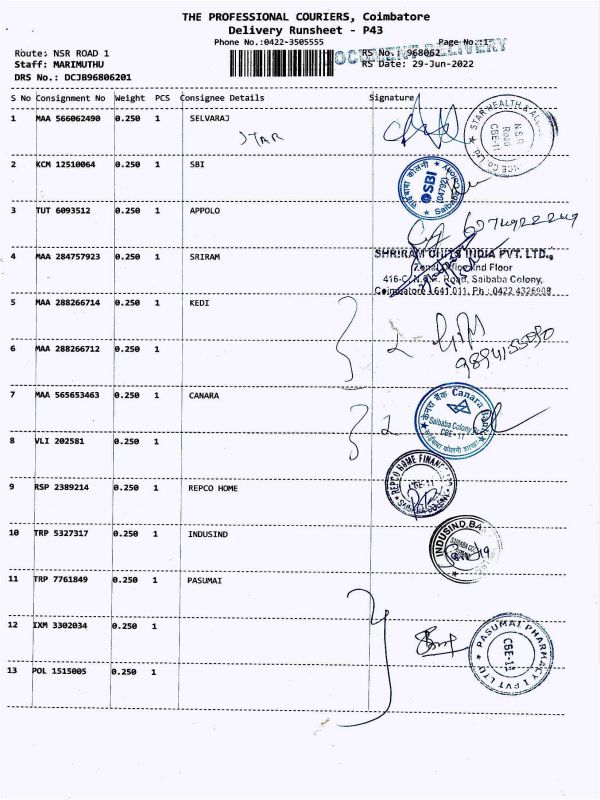 THE PROFESSIONAL COURIERS, Coimbatore
Delivery Runsheet - P43
Phone No.:0422-3505555 Page No.:1
DOCUMENT DELIVERY
Route: NSR ROAD 1 RS No.: 968062
Staff: MARIMUTHU RS Date: 29-Jun-2022
DRS No.: DCJB96806201
S No Consignment No Weight PCS Consignee Details Signature
1 MAA 566062490 0.250 1 SELVARAJ
STAR
STAR HEALTH & N.S.R Road CBE-11
2 KCM 12510064 0.250 1 SBI
SBI (04792)
3 TUT 6093512 0.250 1 APPOLO
4 MAA 284757923 0.250 1 SRIRAM
SHRIRAM CHITS INDIA PVT. LTD.,
Zonal Office IInd Floor
416-C, N.S.R. Road, Saibaba Colony,
Coimbatore 641 011. Ph : 0422 4326908
5 MAA 288266714 0.250 1 KEDI
2
6 MAA 288266712 0.250 1
7 MAA 565653463 0.250 1 CANARA
2
केनरा बैंक Canara Bank
Saibaba Colony Br.
CBE - 11
8 VLI 202581 0.250 1
9 RSP 2389214 0.250 1 REPCO HOME
REPCO HOME FINANCE
CBE-11
10 TRP 5327317 0.250 1 INDUSIND
INDUSIND BANK
11 TRP 7761849 0.250 1 PASUMAI
12 IXM 3302034 0.250 1
PASUMAI PHARMACY I PVT LTD
CBE-11
13 POL 1515005 0.250 1